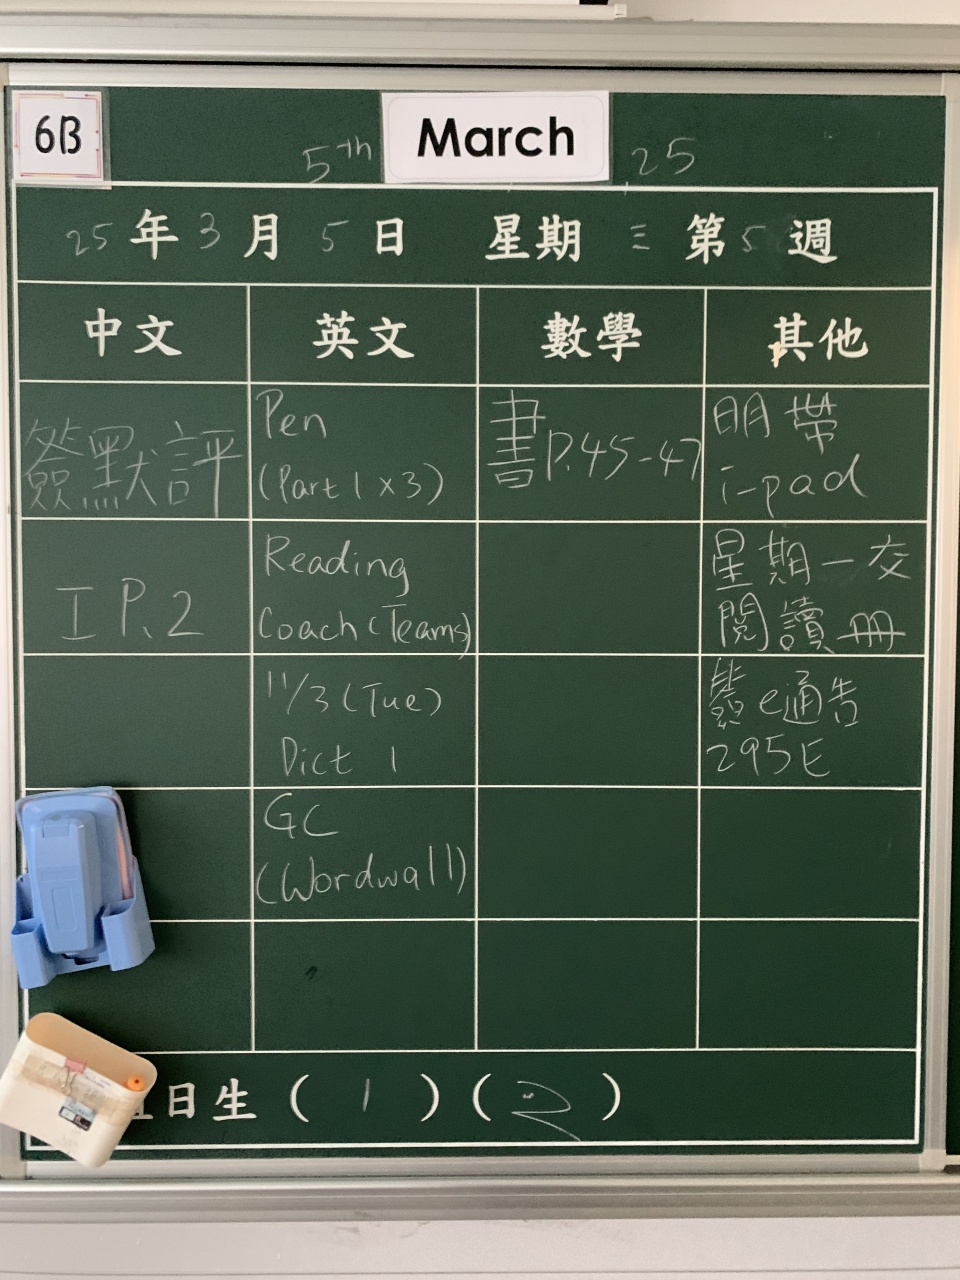 6B
5th March 25
25年3月5日 星期三 第5週
中文 英文 數學 其他
簽默評
Pen
(Part 1 x 3)
書P.45-47
明帶
i-pad
I P.2
Reading
Coach (Teams)
星期一交
閱讀冊
11/3 (Tue)
Dict 1
簽e通告
295E
GC
(Wordwall)
日生 ( 1 ) ( 2 )